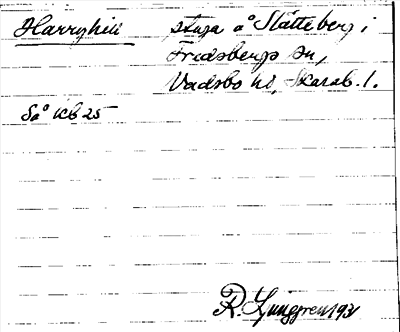 Harryhill stuga å Slätteberg i
Fredsbergs sn,
Vadsbo hd, Skarab. l.
Så kb 25
R. Ljunggren 1931